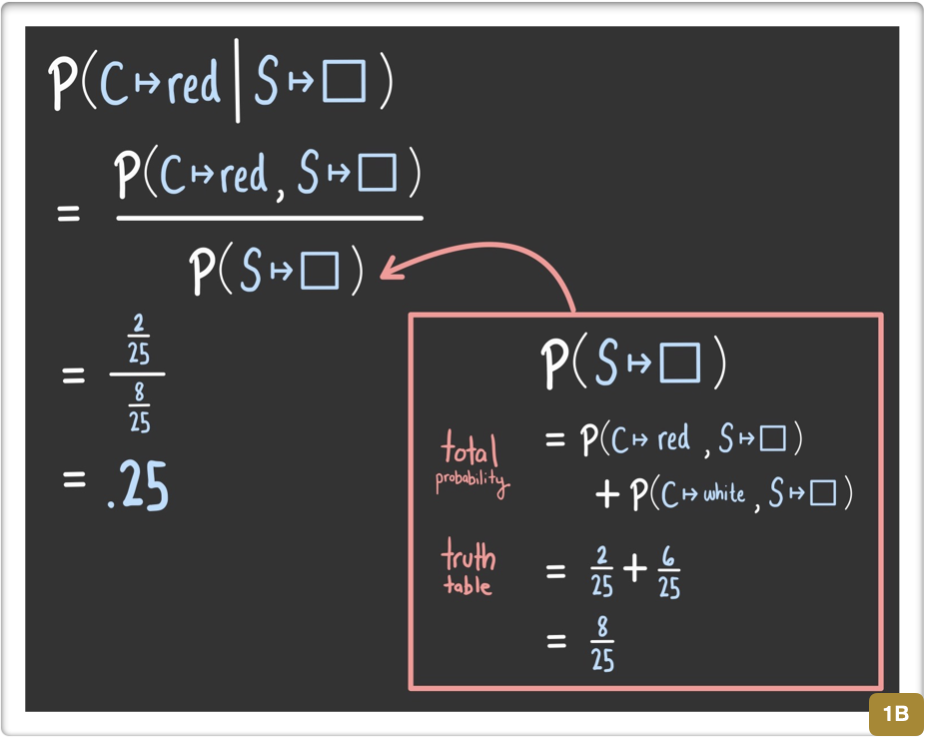 P(C↦red | S↦□)
= P(C↦red, S↦□)
P(S↦□)
= 2/25
8/25
= .25
P(S↦□)
total probability = P(C↦red, S↦□)
+ P(C↦white, S↦□)
truth table = 2/25 + 6/25
= 8/25
1B